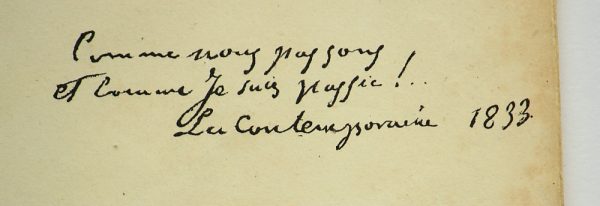 Comme nous passons
et comme Je suis passée !..
La Contemporaine 1833